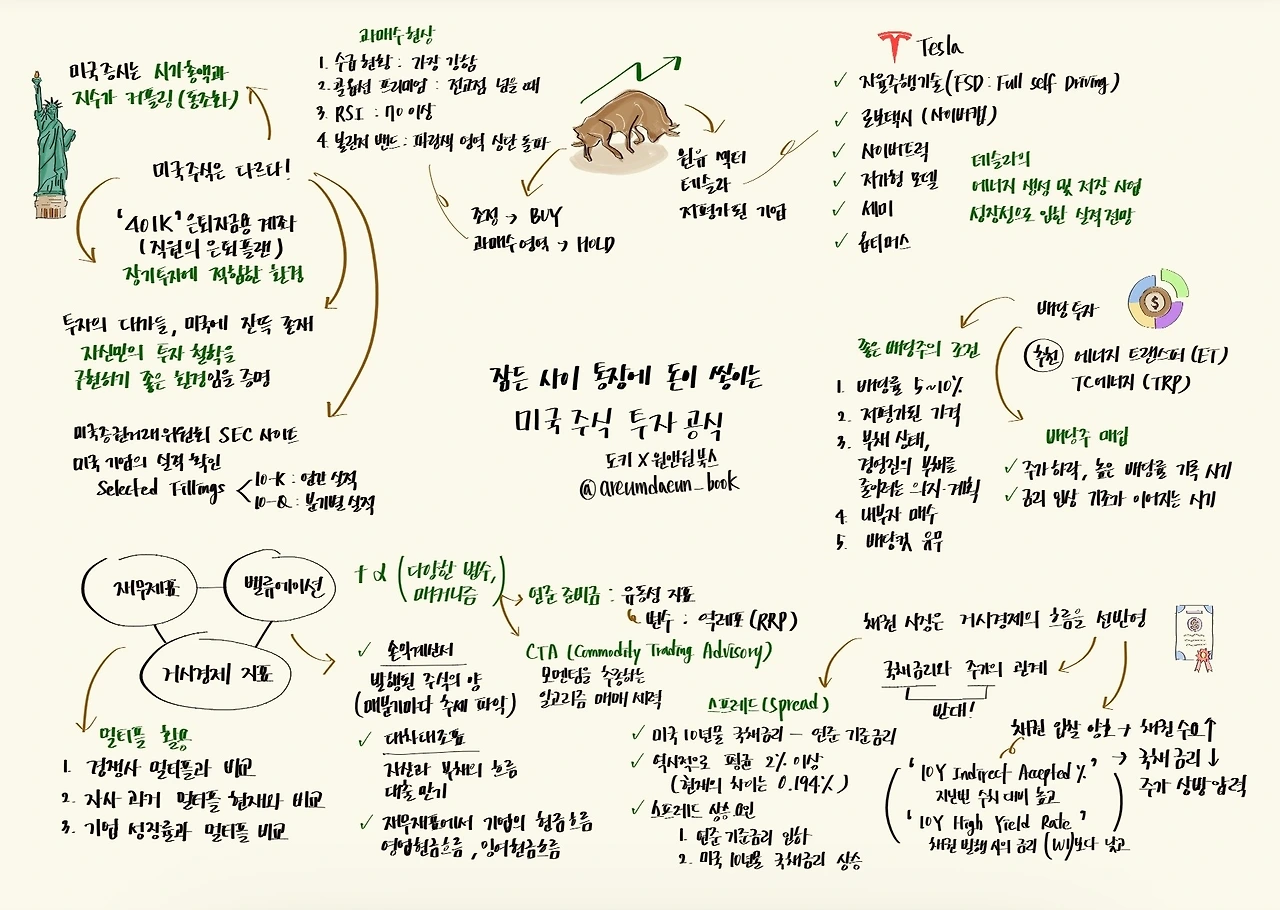 잠든 사이 통장에 돈이 쌓이는
미국 주식 투자 공식
도키 X 원앤원북스
@areumdaeun_book
미국증시는 시가총액과
지수가 커플링(동조화)
미국주식은 다르다!
'401K' 은퇴자금용 계좌
(직원의 은퇴플랜)
장기투자에 적합한 환경
투자의 대가들, 미국에 잔뜩 존재
자신만의 투자 철학을
구현하기 좋은 환경임을 증명
미국증권거래위원회 SEC 사이트
미국 기업의 실적 확인
Selected Fillings
10-K : 연간 실적
10-Q : 분기별 실적
과매수현상
1. 수급 현황 : 가장 강함
2. 콜옵션 프리미엄 : 전고점 넘을 때
3. RSI : 70 이상
4. 볼린저 밴드 : 파란색 영역 상단 돌파
조정 → BUY
과매수영역 → HOLD
원유 섹터
테슬라
저평가된 기업
Tesla
✓ 자율주행기술(FSD : Full Self Driving)
✓ 로보택시 (사이버캡)
✓ 사이버트럭
✓ 저가형 모델
✓ 세미
✓ 옵티머스
테슬라의
에너지 생성 및 저장 사업
성장성으로 인한 실적전망
배당 투자
추천 에너지 트랜스퍼(ET)
TC에너지(TRP)
좋은 배당주의 조건
1. 배당률 5~10%
2. 저평가된 가격
3. 부채 상태,
경영진의 부채를
줄이려는 의지·계획
4. 내부자 매수
5. 배당컷 유무
배당주 매입
✓ 주가하락, 높은 배당률 기록 시기
✓ 금리 인상 기조가 이어지는 시기
재무제표
밸류에이션
거시경제 지표
멀티플 활용
1. 경쟁사 멀티플과 비교
2. 자사 과거 멀티플 현재와 비교
3. 기업 성장률과 멀티플 비교
+α (다양한 변수,
매커니즘)
연준 준비금 : 유동성 지표
변수 : 역레포(RRP)
CTA (Commodity Trading Advisory)
모멘텀을 추종하는
알고리즘 매매 세력
✓ 손익계산서
발행된 주식의 양
(매분기마다 추세 파악)
✓ 대차대조표
자산과 부채의 흐름
대출 만기
✓ 재무제표에서 기업의 현금흐름
영업현금흐름, 잉여현금흐름
스프레드(Spread)
✓ 미국 10년물 국채금리 - 연준 기준금리
✓ 역사적으로 평균 2% 이상
(현재의 차이는 0.194%)
✓ 스프레드 상승요인
1. 연준 기준금리 인하
2. 미국 10년물 국채금리 상승
채권 시장은 거시경제의 흐름을 선반영
국채금리와 주가의 관계
반대!
채권 입찰 양호 → 채권 수요↑
→ 국채 금리↓
주가 상방압력
"10Y Indirect Accepted %"
지난번 수치 대비 높고
"10Y High Yield Rate"
채권 발행 시의 금리 (WI)보다 낮고